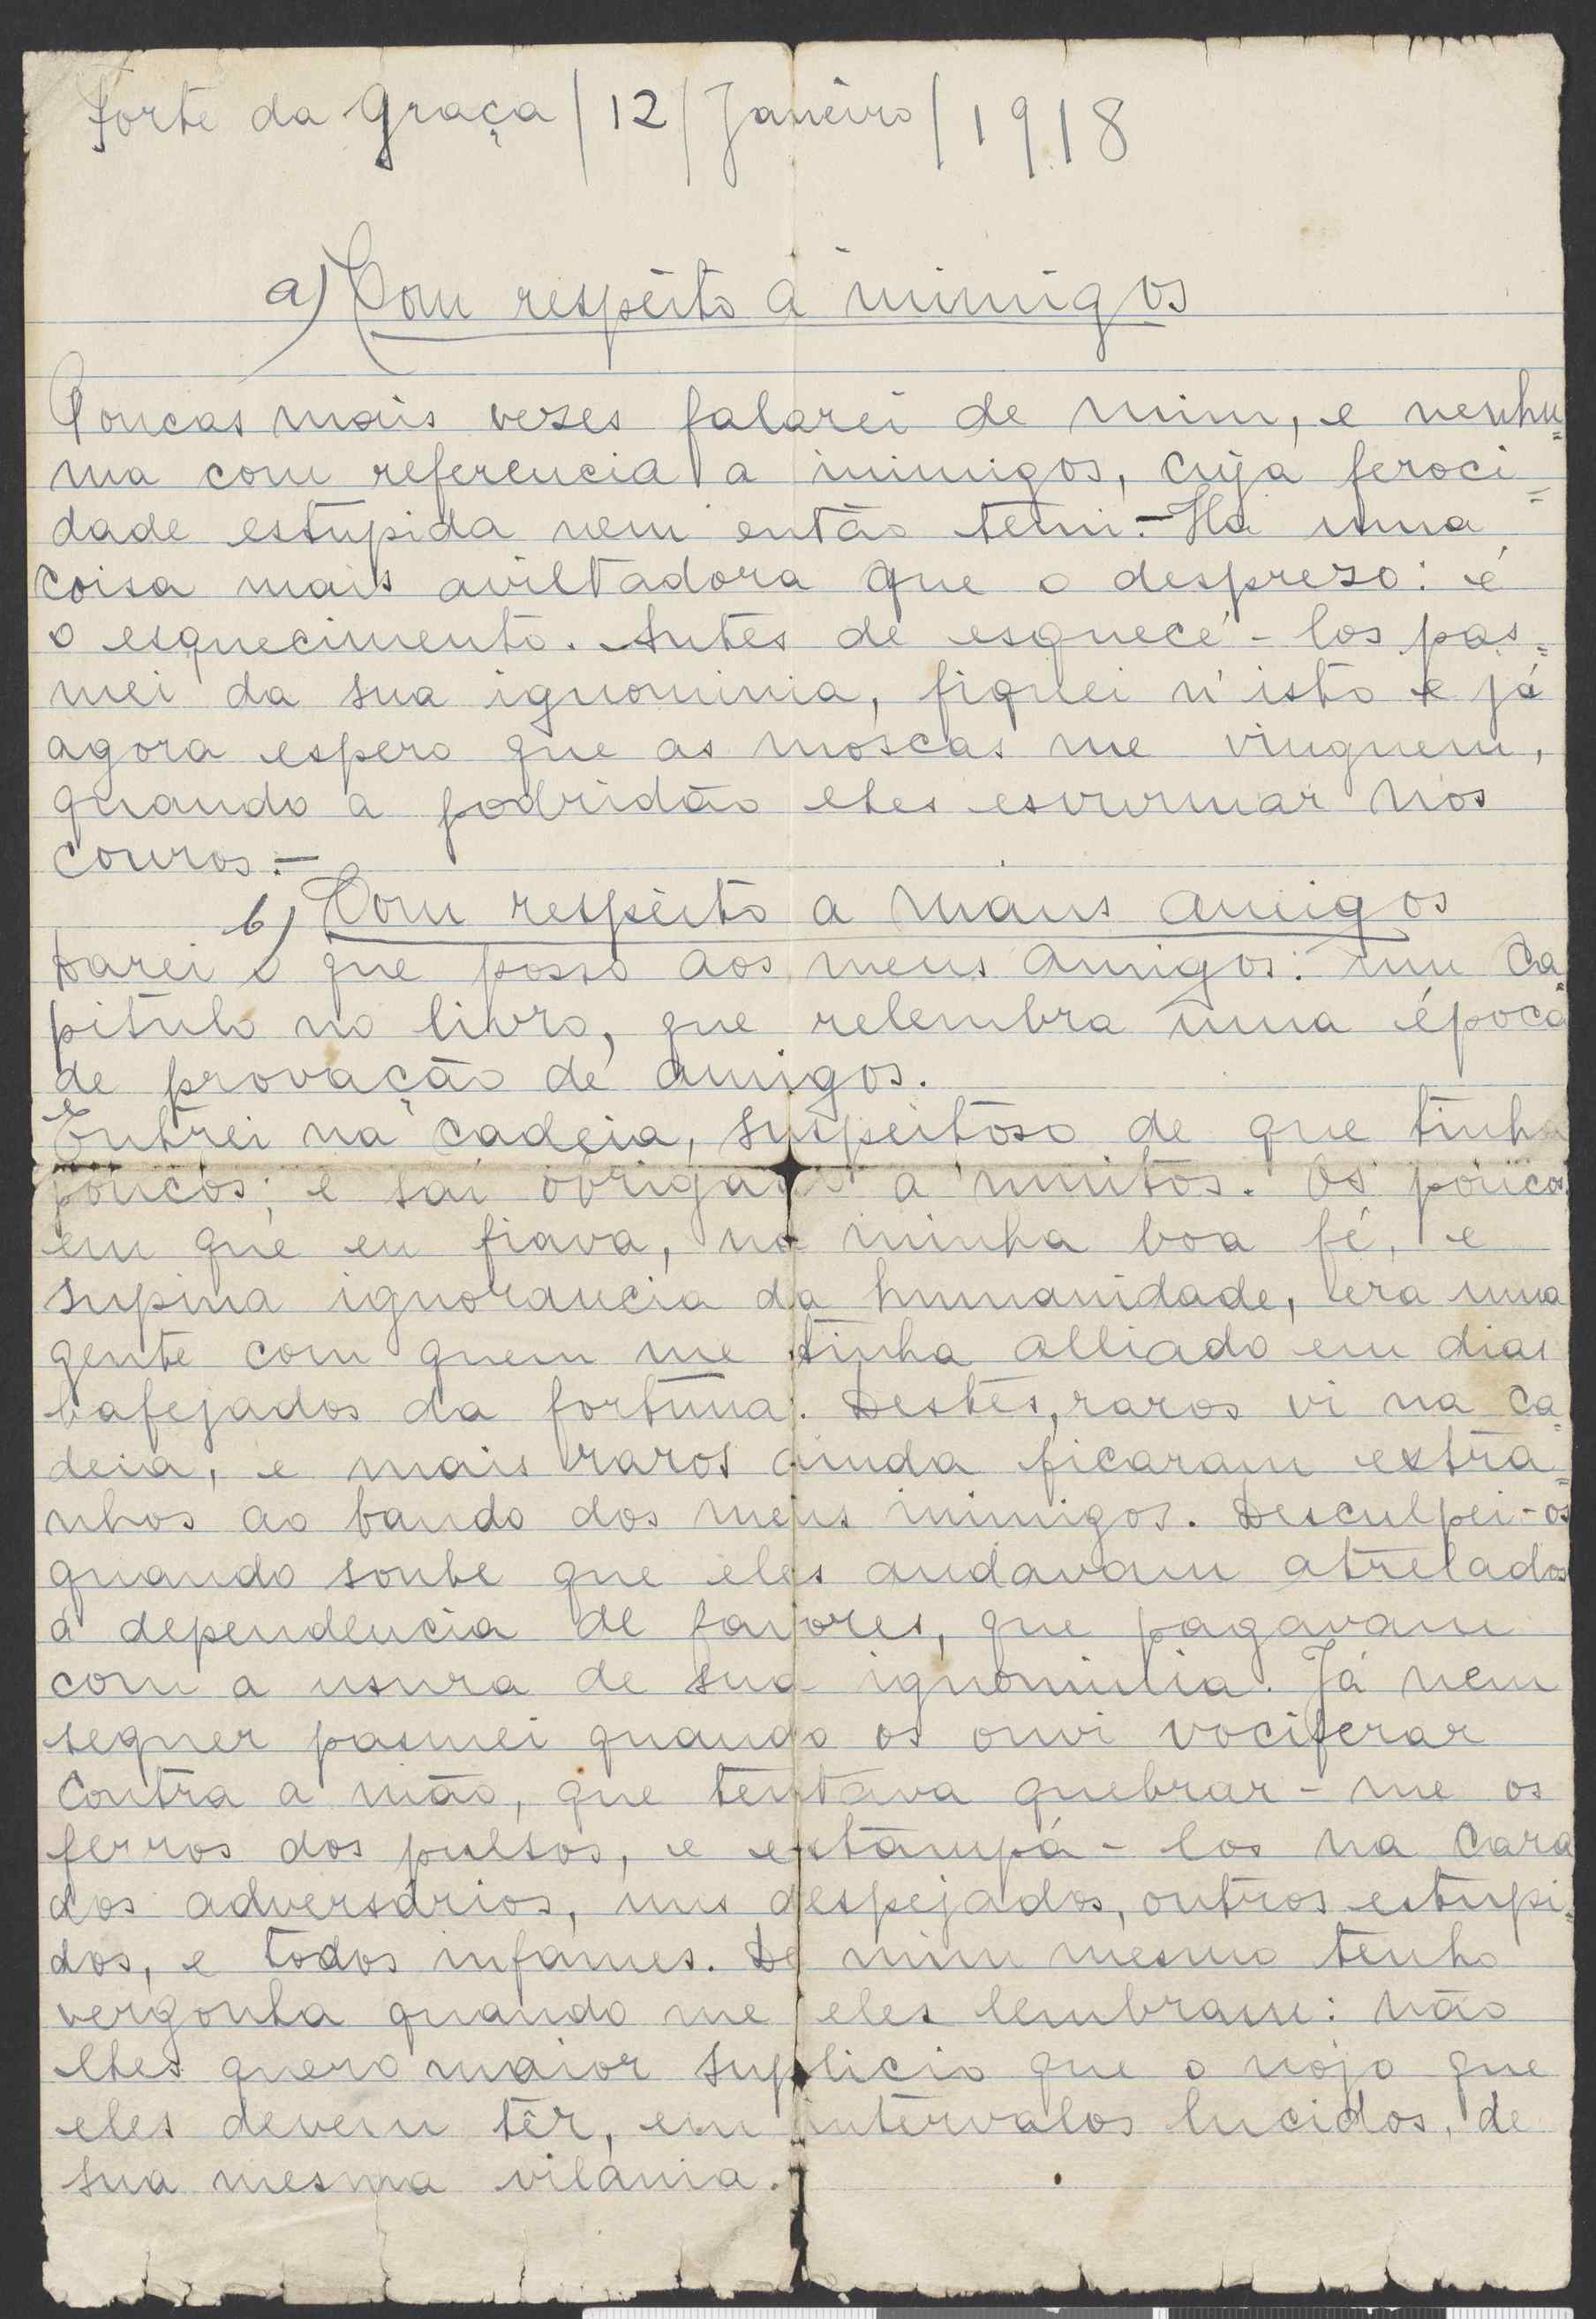 Forte da Graça/12/Janeiro/1918
a) Com respeito a inimigos
Poucas mais vezes falarei de mim, e nenhu=
ma com referencia a inimigos, cuja feroci=
dade estupida nem então temi.- Ha uma
coisa mais aviltadora que o despreso: é
o esquecimento. Antes de esquecê-los pas=
mei da sua ignominia, fiquei n'isto e já
agora espero que as moscas me vinguem,
quando a podridão lhes esvurmar nos
couros.-
b) Com respeito a maus amigos
Darei o que posso aos meus amigos: um ca=
pitulo no livro, que relembra uma época
de provação de amigos.
Entrei na cadeia, suspeitoso de que tinha
poucos; e saí obrigado a muitos. Os poucos
em que eu fiava, na minha boa fé, e
supina ignorancia da humanidade, era uma
gente com quem me tinha alliado em dias
bafejados da fortuna. Destes, raros vi na ca=
deia, e mais raros ainda ficaram extra=
nhos ao bando dos meus inimigos. Desculpei-os
quando soube que eles andavam atrelados
á dependencia de favores, que pagavam
com a usura de sua ignominia. Já nem
sequer pasmei quando os ouvi vociferar
contra a mão, que tentava quebrar-me os
ferros dos pulsos, e estampá-los na cara
dos adversários, uns despejados, outros estupi=
dos, e todos infames. De mim mesmo tenho
vergonha quando me eles lembram: não
lhes quero maior suplicio que o nojo que
eles devem têr, em intervalos lucidos, de
sua mesma vilania.